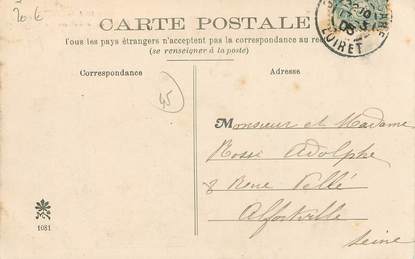 20 €
CARTE POSTALE
Tous les pays étrangers n'acceptent pas la correspondance au
(se renseigner à la poste)
LOIRET
Correspondance
Adresse
45
Monsieur et Madame
Rossi Adolphe
8 Rue
Alfortville
Seine
1081